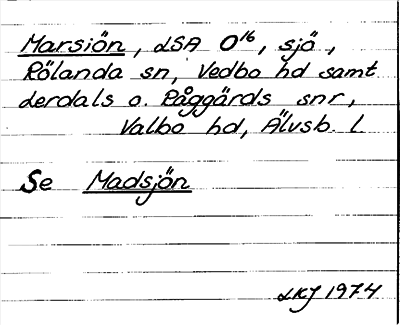 Marsjön, LSA O¹⁶, sjö,
Rölanda sn, Vedbo hd samt
Lerdals o. Råggärds snr,
Valbo hd, Älvsb. l.
Se Madsjön
LKJ 1974